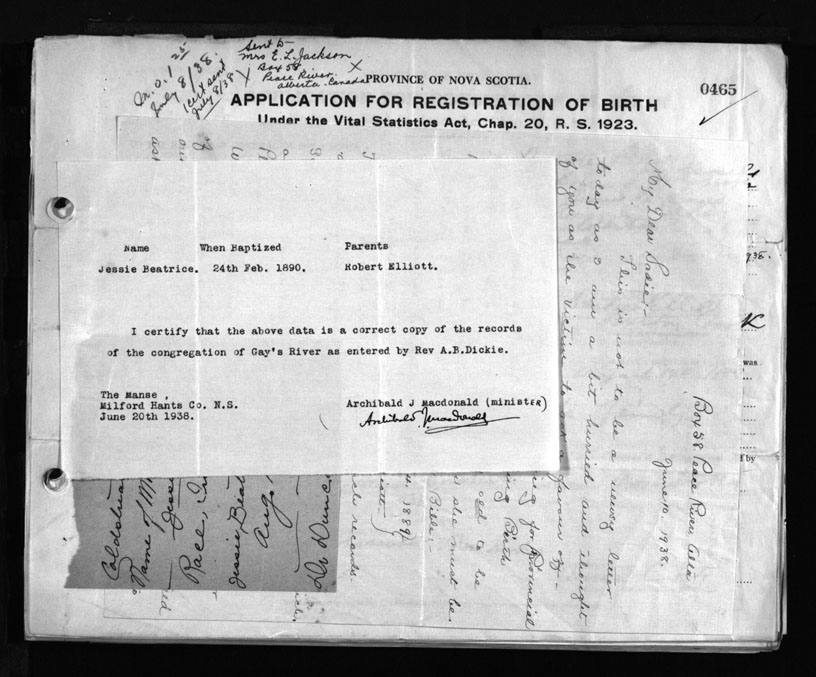 M.O. 1 25
July 8/38.
1 cert sent
July 8/38
Sent to
Mrs E. L. Jackson
Box 58
Peace River
Alberta Canada
PROVINCE OF NOVA SCOTIA.
0465
APPLICATION FOR REGISTRATION OF BIRTH
Under the Vital Statistics Act, Chap. 20, R. S. 1923.
Name When Baptized Parents
Jessie Beatrice. 24th Feb. 1890. Robert Elliott.
I certify that the above data is a correct copy of the records
of the congregation of Gay's River as entered by Rev A.B.Dickie.
The Manse ,
Milford Hants Co. N.S.
June 20th 1938.
Archibald J Macdonald (minister)
Archibald J. Macdonald
Box 58 Peace River Alta
June 10, 1938.
My Dear Sadie:-
This is not to be a newsy letter
today as I am a bit hurried and thought
of you as the victim to ask a favour of -
ing for Provincial
ing Birth
ced to be
s she must be
Bible -
1889
records.
Coldstream
Name of M
Jessie
Race,
Jessie Beat
Aug.
Dr Dunc
was
by
1938.
K